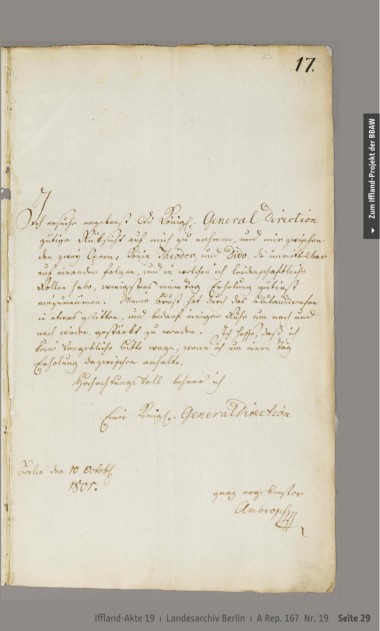 17.
Ich ersuche ergebenst die Königl. General Direction
gütige Rücksicht auf mich zu nehmen, und mir zwischen
den zwey Opern: König Theodor, und Dido, die unmittelbar
auf einander folgen, und in welchen ich leidenschaftliche
Rollen habe, wenigstens einen Tag Erholung gütigst
einzuräumen. Meine Brust hat durch das
so etwas gelitten, und bedarf einiger Ruhe um nach und
nach wieder gestärkt zu werden. Ich hoffe, daß ich
keine vergebliche bitte wage, wenn ich um einen Tag
Erholung dazwischen anhalte.
Hochachtungsvoll beharre ich
Einer Königl. General Direction
Berlin den 10 Octobr
1801.
ganz ergebenster
Ambrosch
Zum Iffland-Projekt der BBAW
Iffland-Akte 19 | Landesarchiv Berlin | A Rep. 167 Nr. 19 Seite 29